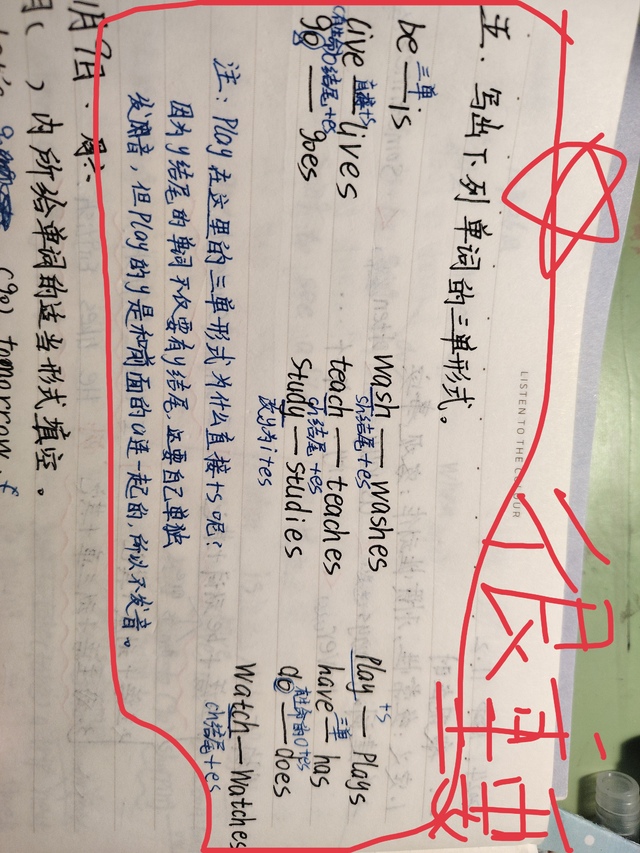 LISTEN TO THE COLOUR
很重要
五. 写出下列单词的三单形式。
be 三单 is
wash — washes
sh结尾+es
Play — Plays
+s
live — lives
直接+s
teach — teaches
ch结尾+es
have — has
三单
go — goes
o结尾+es
study — studies
改y为ies
do — does
Watch — Watches
ch结尾+es
注: Play 在这里的三单形式为什么直接+s呢?
因为y结尾的单词不仅要有y结尾,还要自己单独
发音,但Play的y是和前面的a连一起的,所以不发音。
月9日. 周六
( )内所给单词的适当形式填空。
(go) tomorrow.